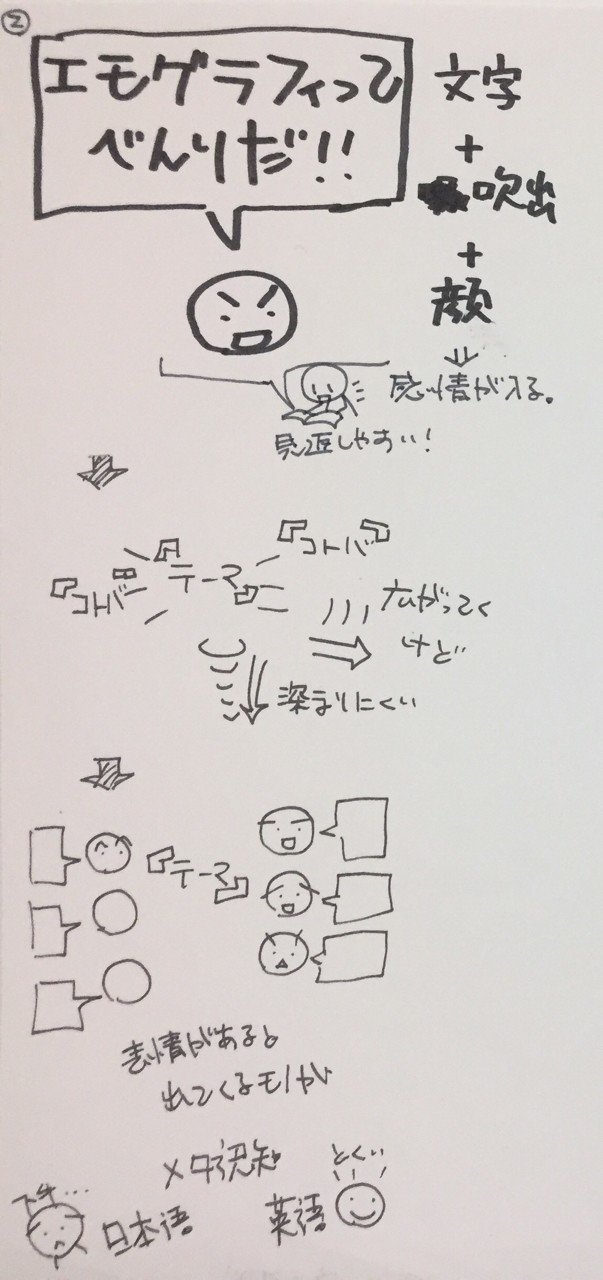 ②
エモグラフィって
べんりだ!!
文字
+
吹出
+
顔
⇓
感情が入る。
見返しやすい!
『コトバ』
『テーマ』
『コトバ』
広がってく
けど
深まりにくい
『テーマ』
表情があると
出てくるモノが
メタ認知
下手…
日本語
英語
とくい